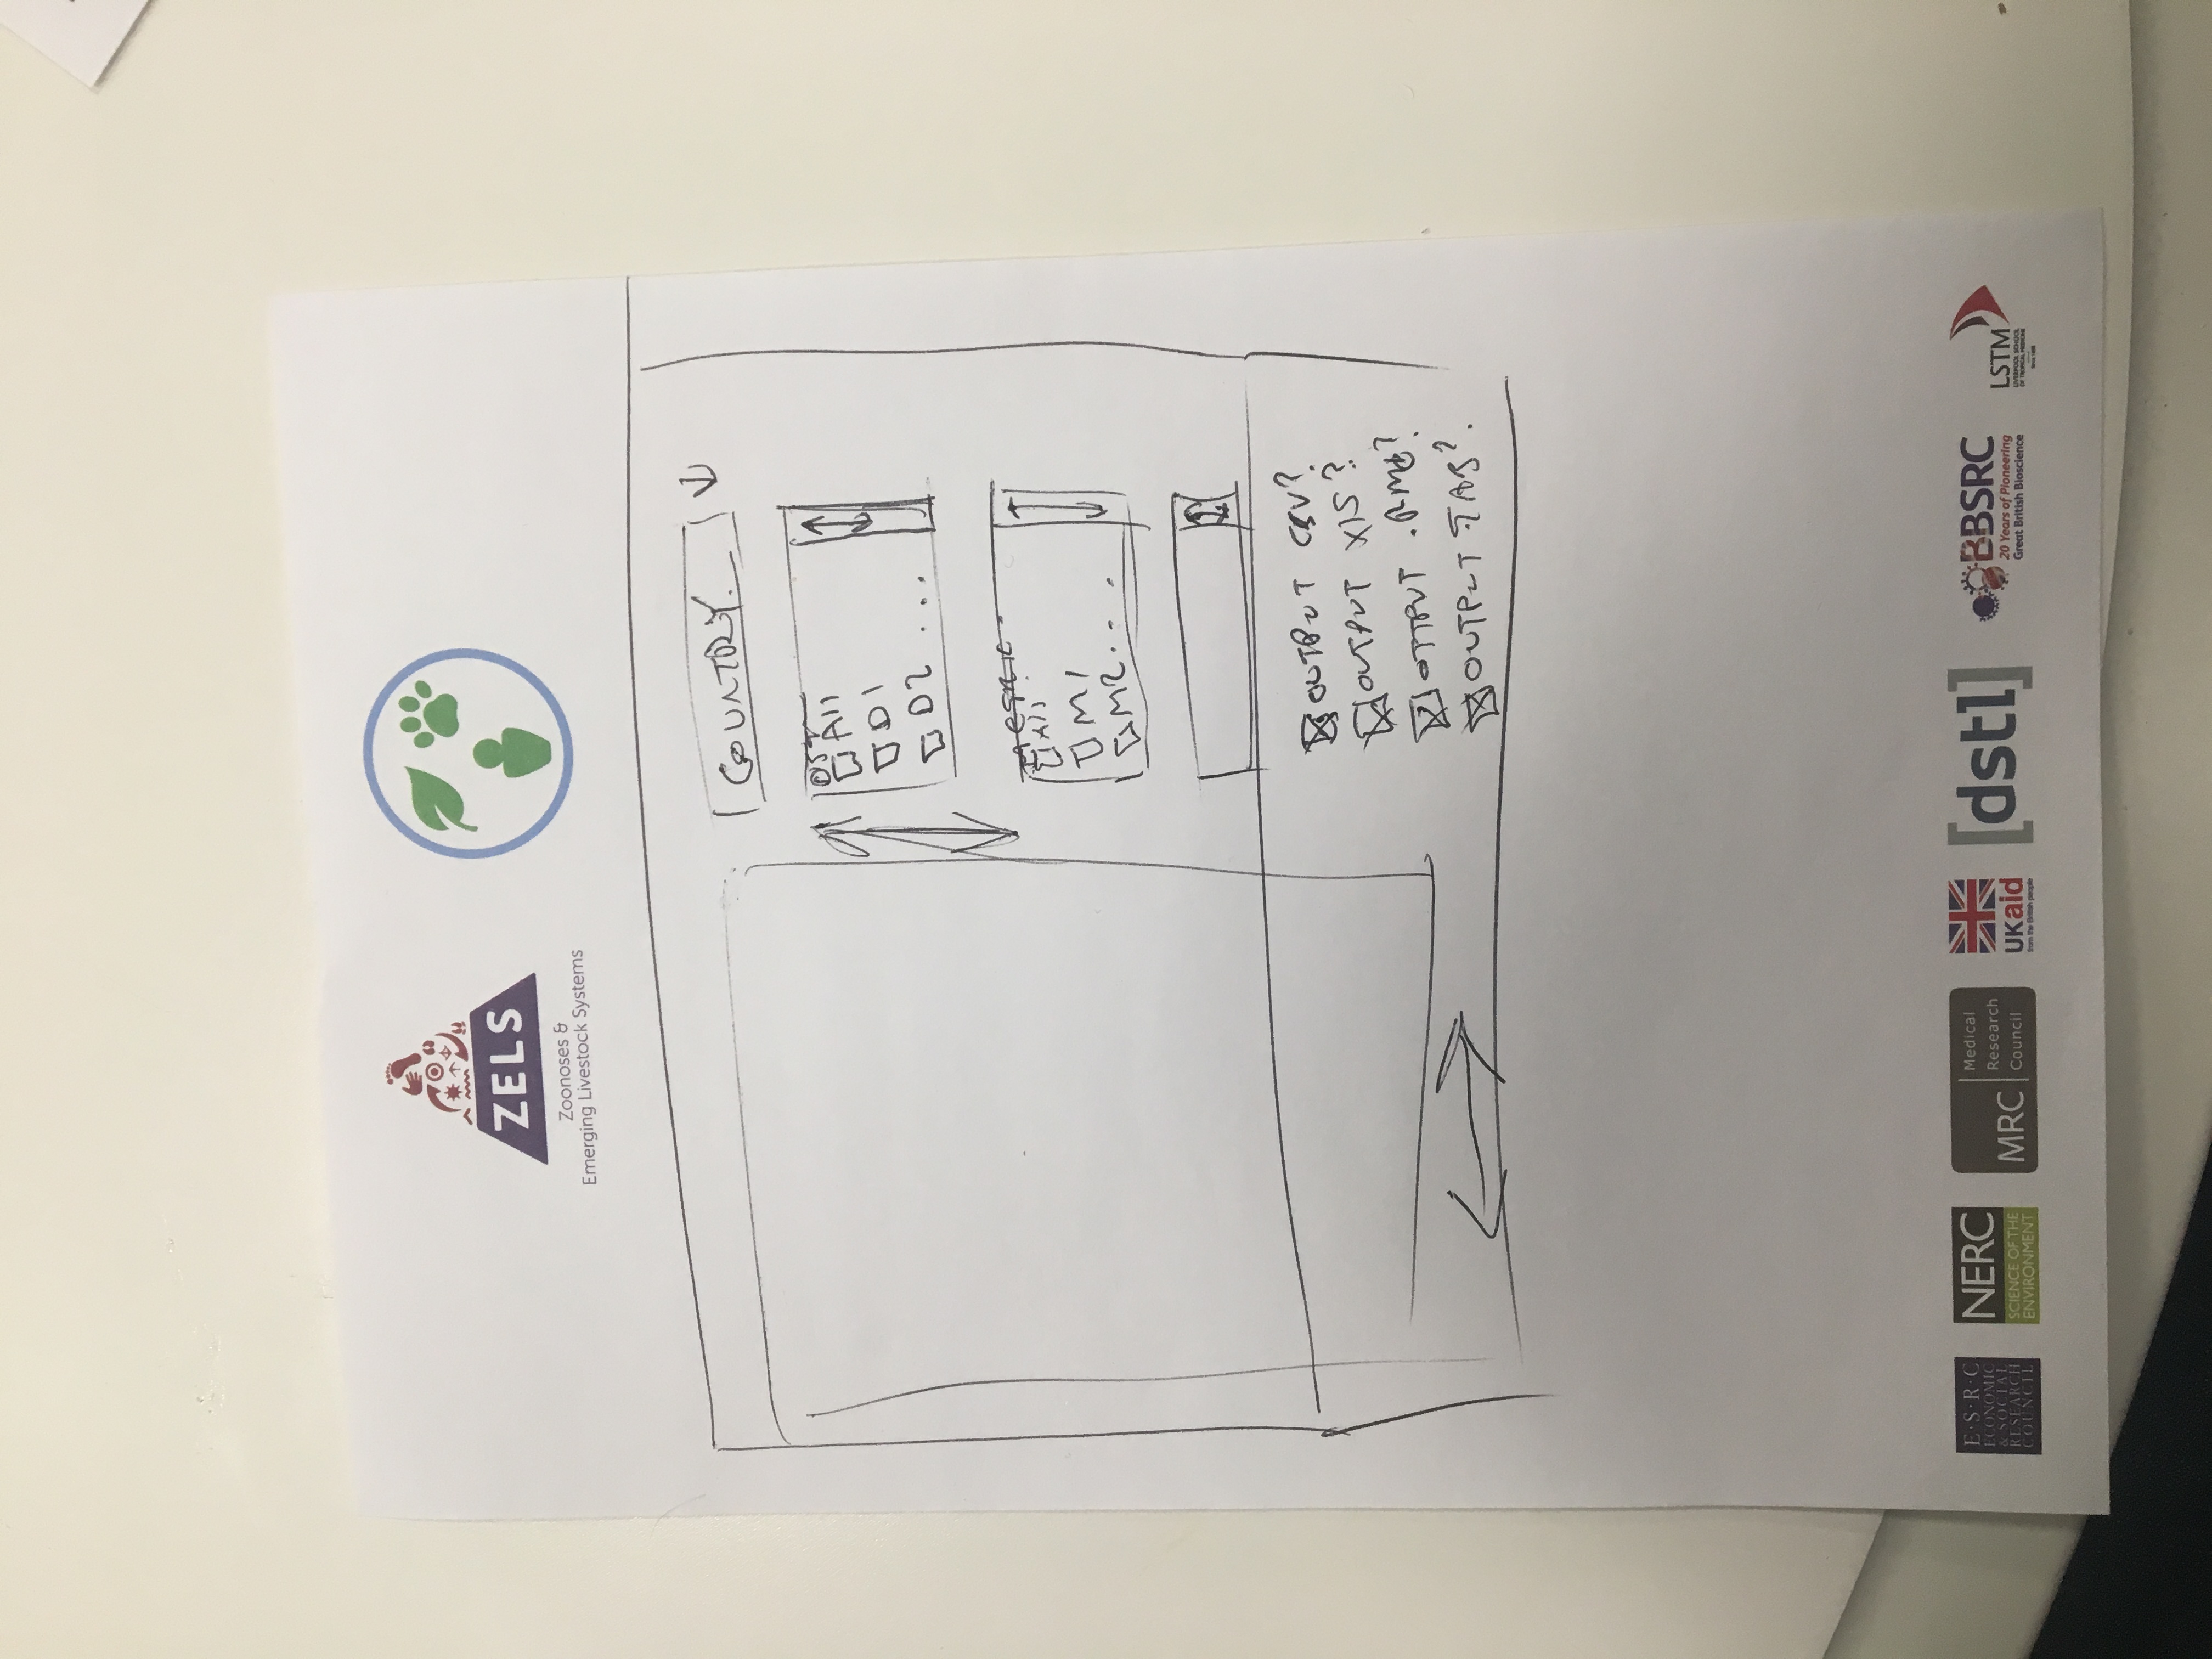 ZELS
Zoonoses &
Emerging Livestock Systems
COUNTRY.
All
D1
D2 ...
METRIC
All
M1
M2...
OUTPUT CSV?
OUTPUT XLS?
OUTPUT
OUTPUT TAB?
E·S·R·C
ECONOMIC
& SOCIAL
RESEARCH
COUNCIL
NERC
SCIENCE OF THE
ENVIRONMENT
MRC
Medical
Research
Council
UKaid
from the British people
[dstl]
BBSRC
20 Years of Pioneering
Great British Bioscience
LSTM
LIVERPOOL SCHOOL
OF TROPICAL MEDICINE